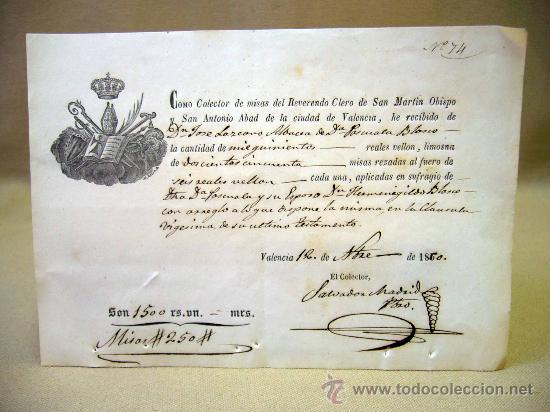 Nº 74
COMO Colector de misas del Reverendo Clero de San Martin Obispo
y San Antonio Abad de la ciudad de Valencia, he recibido de
Dn Jose Lozcano Albacea de Da Pascuala Blasco
la cantidad de mil quinientos reales vellon, limosna
de doscientas cincuenta misas rezadas al fuero de
seis reales vellon cada una, aplicadas en sufragio de
Dha Da Pascuala y su Esposo Dn Hermenegildo Blasco
con arreglo a lo que dispone la misma, en la Clausula
Vigesima de su ultimo testamento.
Valencia 12 de de 1860.
El Colector,
Salvador Madrid
Pbro.
Son 1500 rs. vn. = mrs.
Misas # 250 #
todocoleccion
www.todocoleccion.net